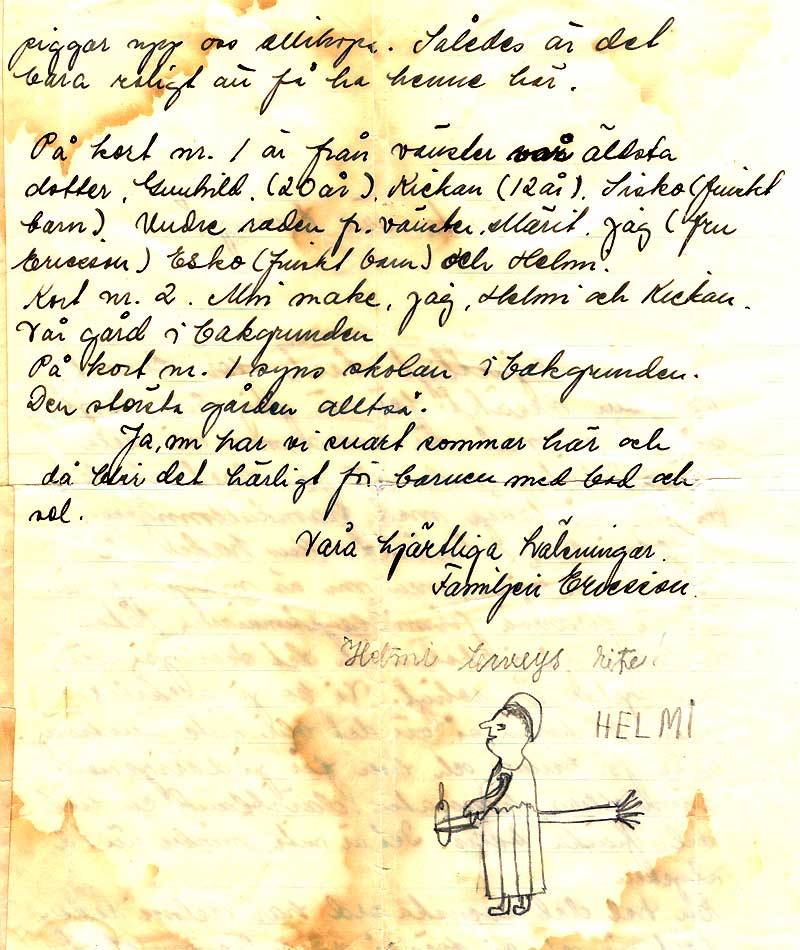 piggar upp oss allihopa. Således är det
bara roligt att få ha henne här.
På kort nr. 1 är från vänster vår äldsta
dotter, Gunhild, (20 år), Kickan (12 år), Sisko (finskt
barn) Undre raden fr. vänster. Märit, jag (fru
Ericsson) Esko (finskt barn) och Helmi.
Kort nr. 2. Min make, jag, Helmi och Kickan.
Vår gård i bakgrunden
På kort nr. 1 syns skolan i bakgrunden.
Den största gården alltså.
Ja, nu har vi snart sommar här och
då blir det härligt för barnen med bad och
sol.
Våra hjärtliga hälsningar.
Familjen Ericsson.
Helmi terveys
HELMI